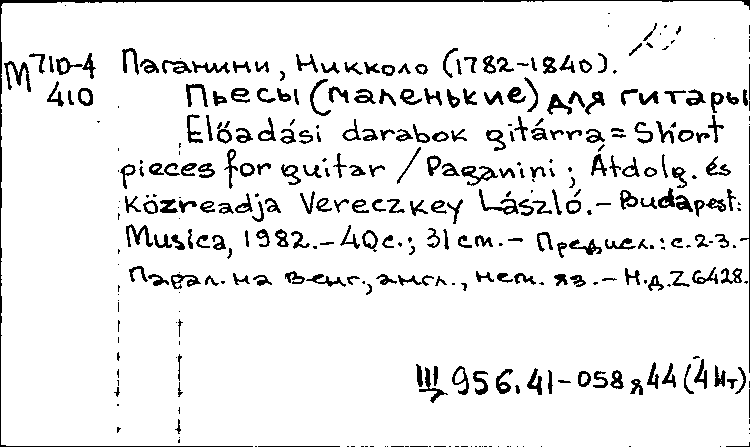 М 710-4 Паганини, Никколо (1782-1840).
410 Пьесы (маленькие) для гитары
Előadási darabok gitárra = Short
pieces for guitar / Paganini; Átdolg. és
közreadja Vereczkey László. – Budapest:
Musica, 1982. – 40 с.; 31 cm. – Предисл.: с. 2-3. –
Парал. на венг., англ., нем. яз. – Н.д. Z 6428.
Щ 956.41-058 я 44 (4Ит)